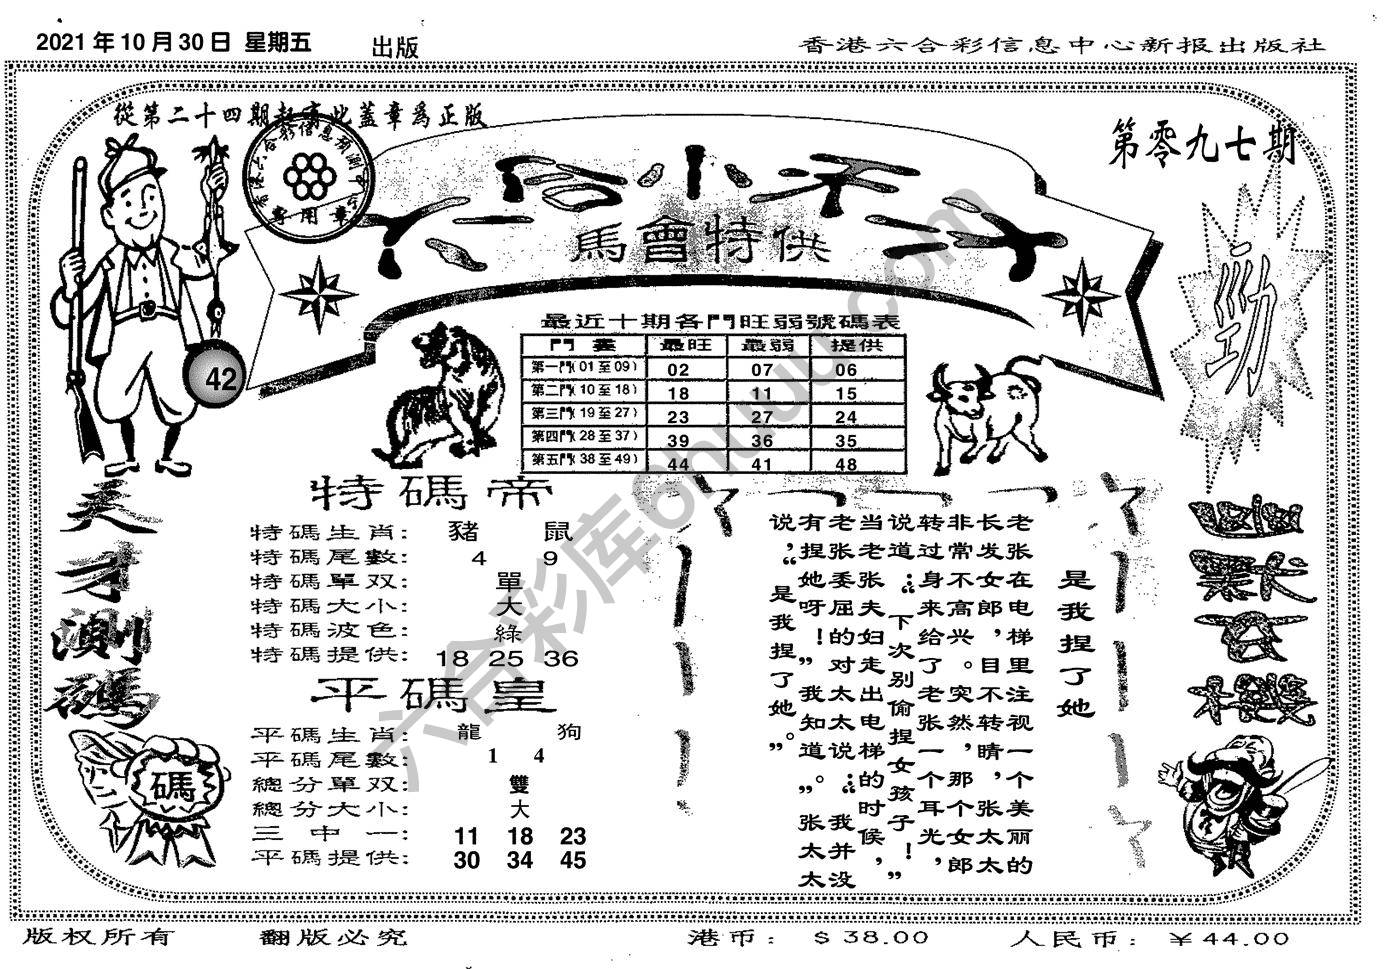 2021 年 10 月 30 日 星期五
出版
香港六合彩信息中心新报出版社
從第二十四期起寄此蓋章爲正版
第零九七期
馬會特供
勁
42
最近十期各門旺弱號碼表
最旺 最弱 提供
第一門(01 至 09) 02 07 06
第二門(10 至 18) 18 11 15
第三門(19 至 27) 23 27 24
第四門(28 至 37) 39 36 35
第五門(38 至 49) 44 41 48
天才測碼
特碼帝
特碼生肖: 豬 鼠
特碼尾數: 4 9
特碼單双: 單
特碼大小: 大
特碼波色: 綠
特碼提供: 18 25 36
平碼皇
平碼生肖: 龍 狗
平碼尾數: 1 4
總分單双: 雙
總分大小: 大
三中一: 11 18 23
平碼提供: 30 34 45
碼
是我捏了她
老张在电梯里注视一个美丽的
长发女郎,目不转睛,张太太
非常不高兴。突然,那个女郎
转过身来给了老张一个耳光,
说道:“下次别偷捏女孩子!”
当老张夫妇走出电梯的时候,
老张委屈的对太太说:“我并没
有捏她呀!”“我知道。”张太太
说,“是我捏了她。”
六合彩库6huuu.com
版权所有
翻版必究
港币: $ 38.00
人民币: ￥44.00